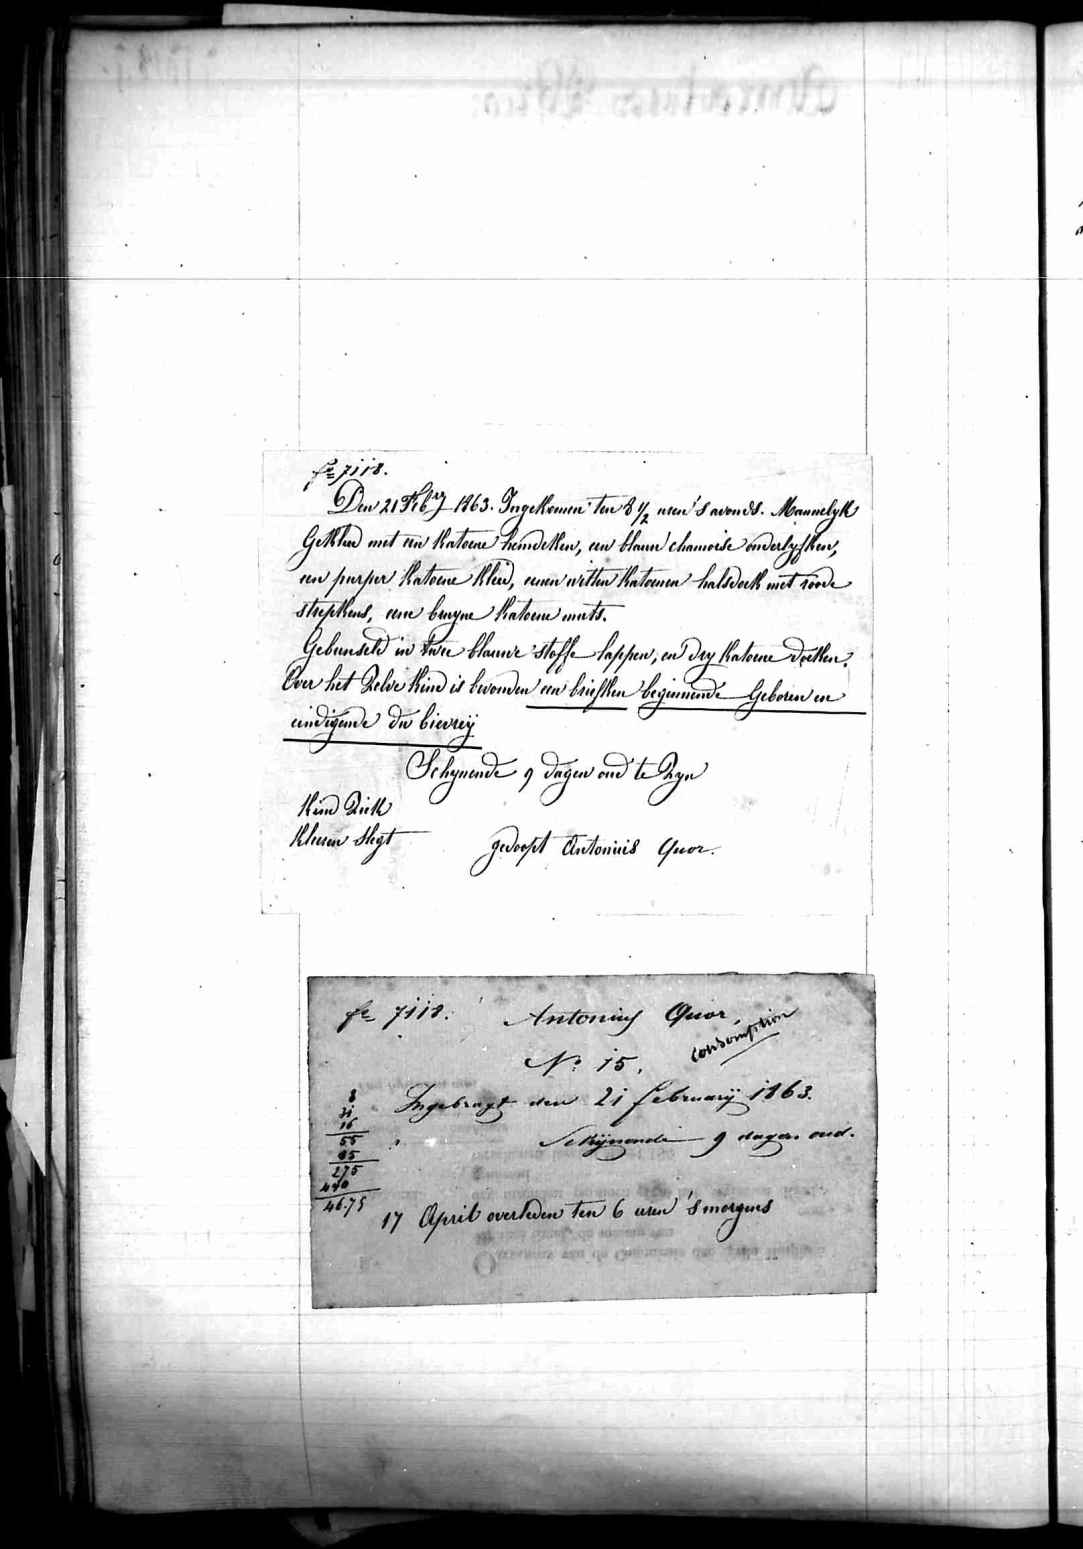 fo 7118.
Den 21 Febry 1863. Ingekomen ten 8 1/2 uren 's avonds. Mannelyk
Gekleed met een katoene hemdeken, een blauw chamoise onderlyfken,
een purper katoene kleed, eenen witten katoenen halsdoek met roode
strepkens, eene bruyne katoene muts.
Gebunseld in twee blauwe stoffe lappen, en dry katoene doeken.
Over het zelve kind is bevonden een briefken beginnende Geboren en
eindigende du bievreij
Schynende 9 dagen oud te zyn
Kind ziek
Kleeren slegt
gedoopt Antonius Quor.
fo 7118. Antonius Quor.
consomption
No 15.
Ingebragt den 21 february 1863.
Schijnende 9 dagen oud.
8
31
16
55
85
275
440
46.75
17 April overleden ten 6 uren 's morgens